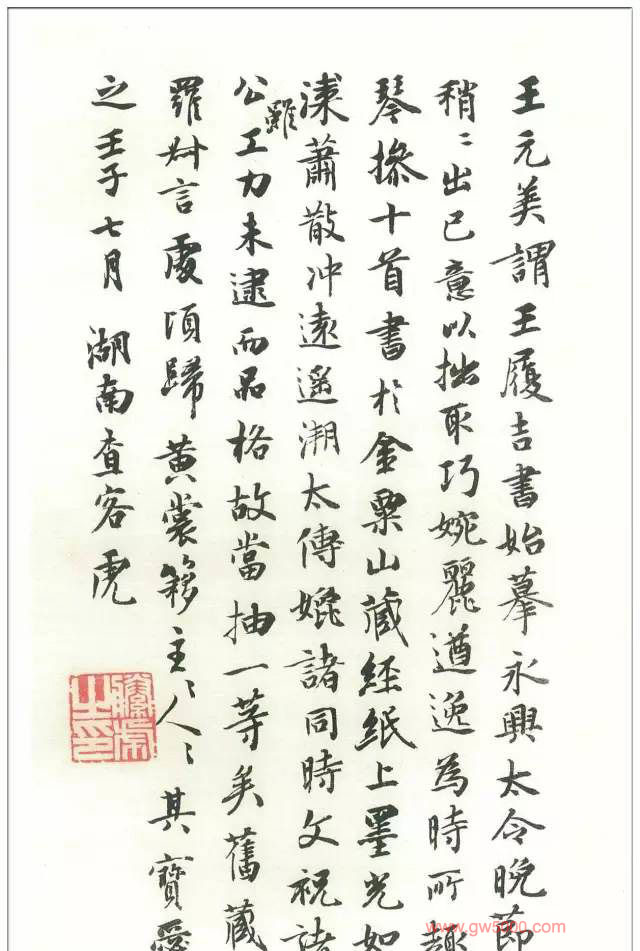 王元美謂王履吉書始摹永興大令晚節
稍稍出己意以拙取巧婉麗遒逸為時所趣
琴操十首書於金粟山藏經紙上墨光如
漆蕭散沖遠遙溯太傅媲諸同時文祝諸
公雖工力未逮而品格故當抽一等矣舊藏
羅叔言處頃歸黃裳簃主主人人其寶愛
之壬子七月湖南查客虎
www.gw5000.com